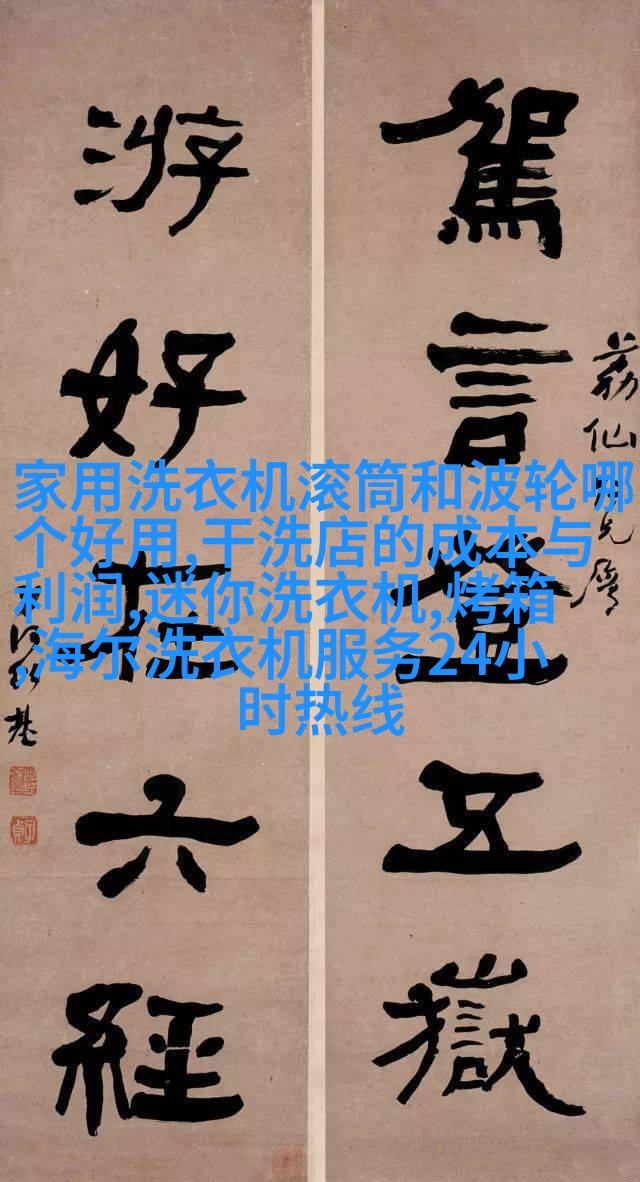 荔仙兄屬
駕言登五嶽
游好在六經
何紹基
子貞
家用洗衣机滚筒和波轮哪
个好用,干洗店的成本与
利润,迷你洗衣机,烤箱
,海尔洗衣机服务24小
时热线